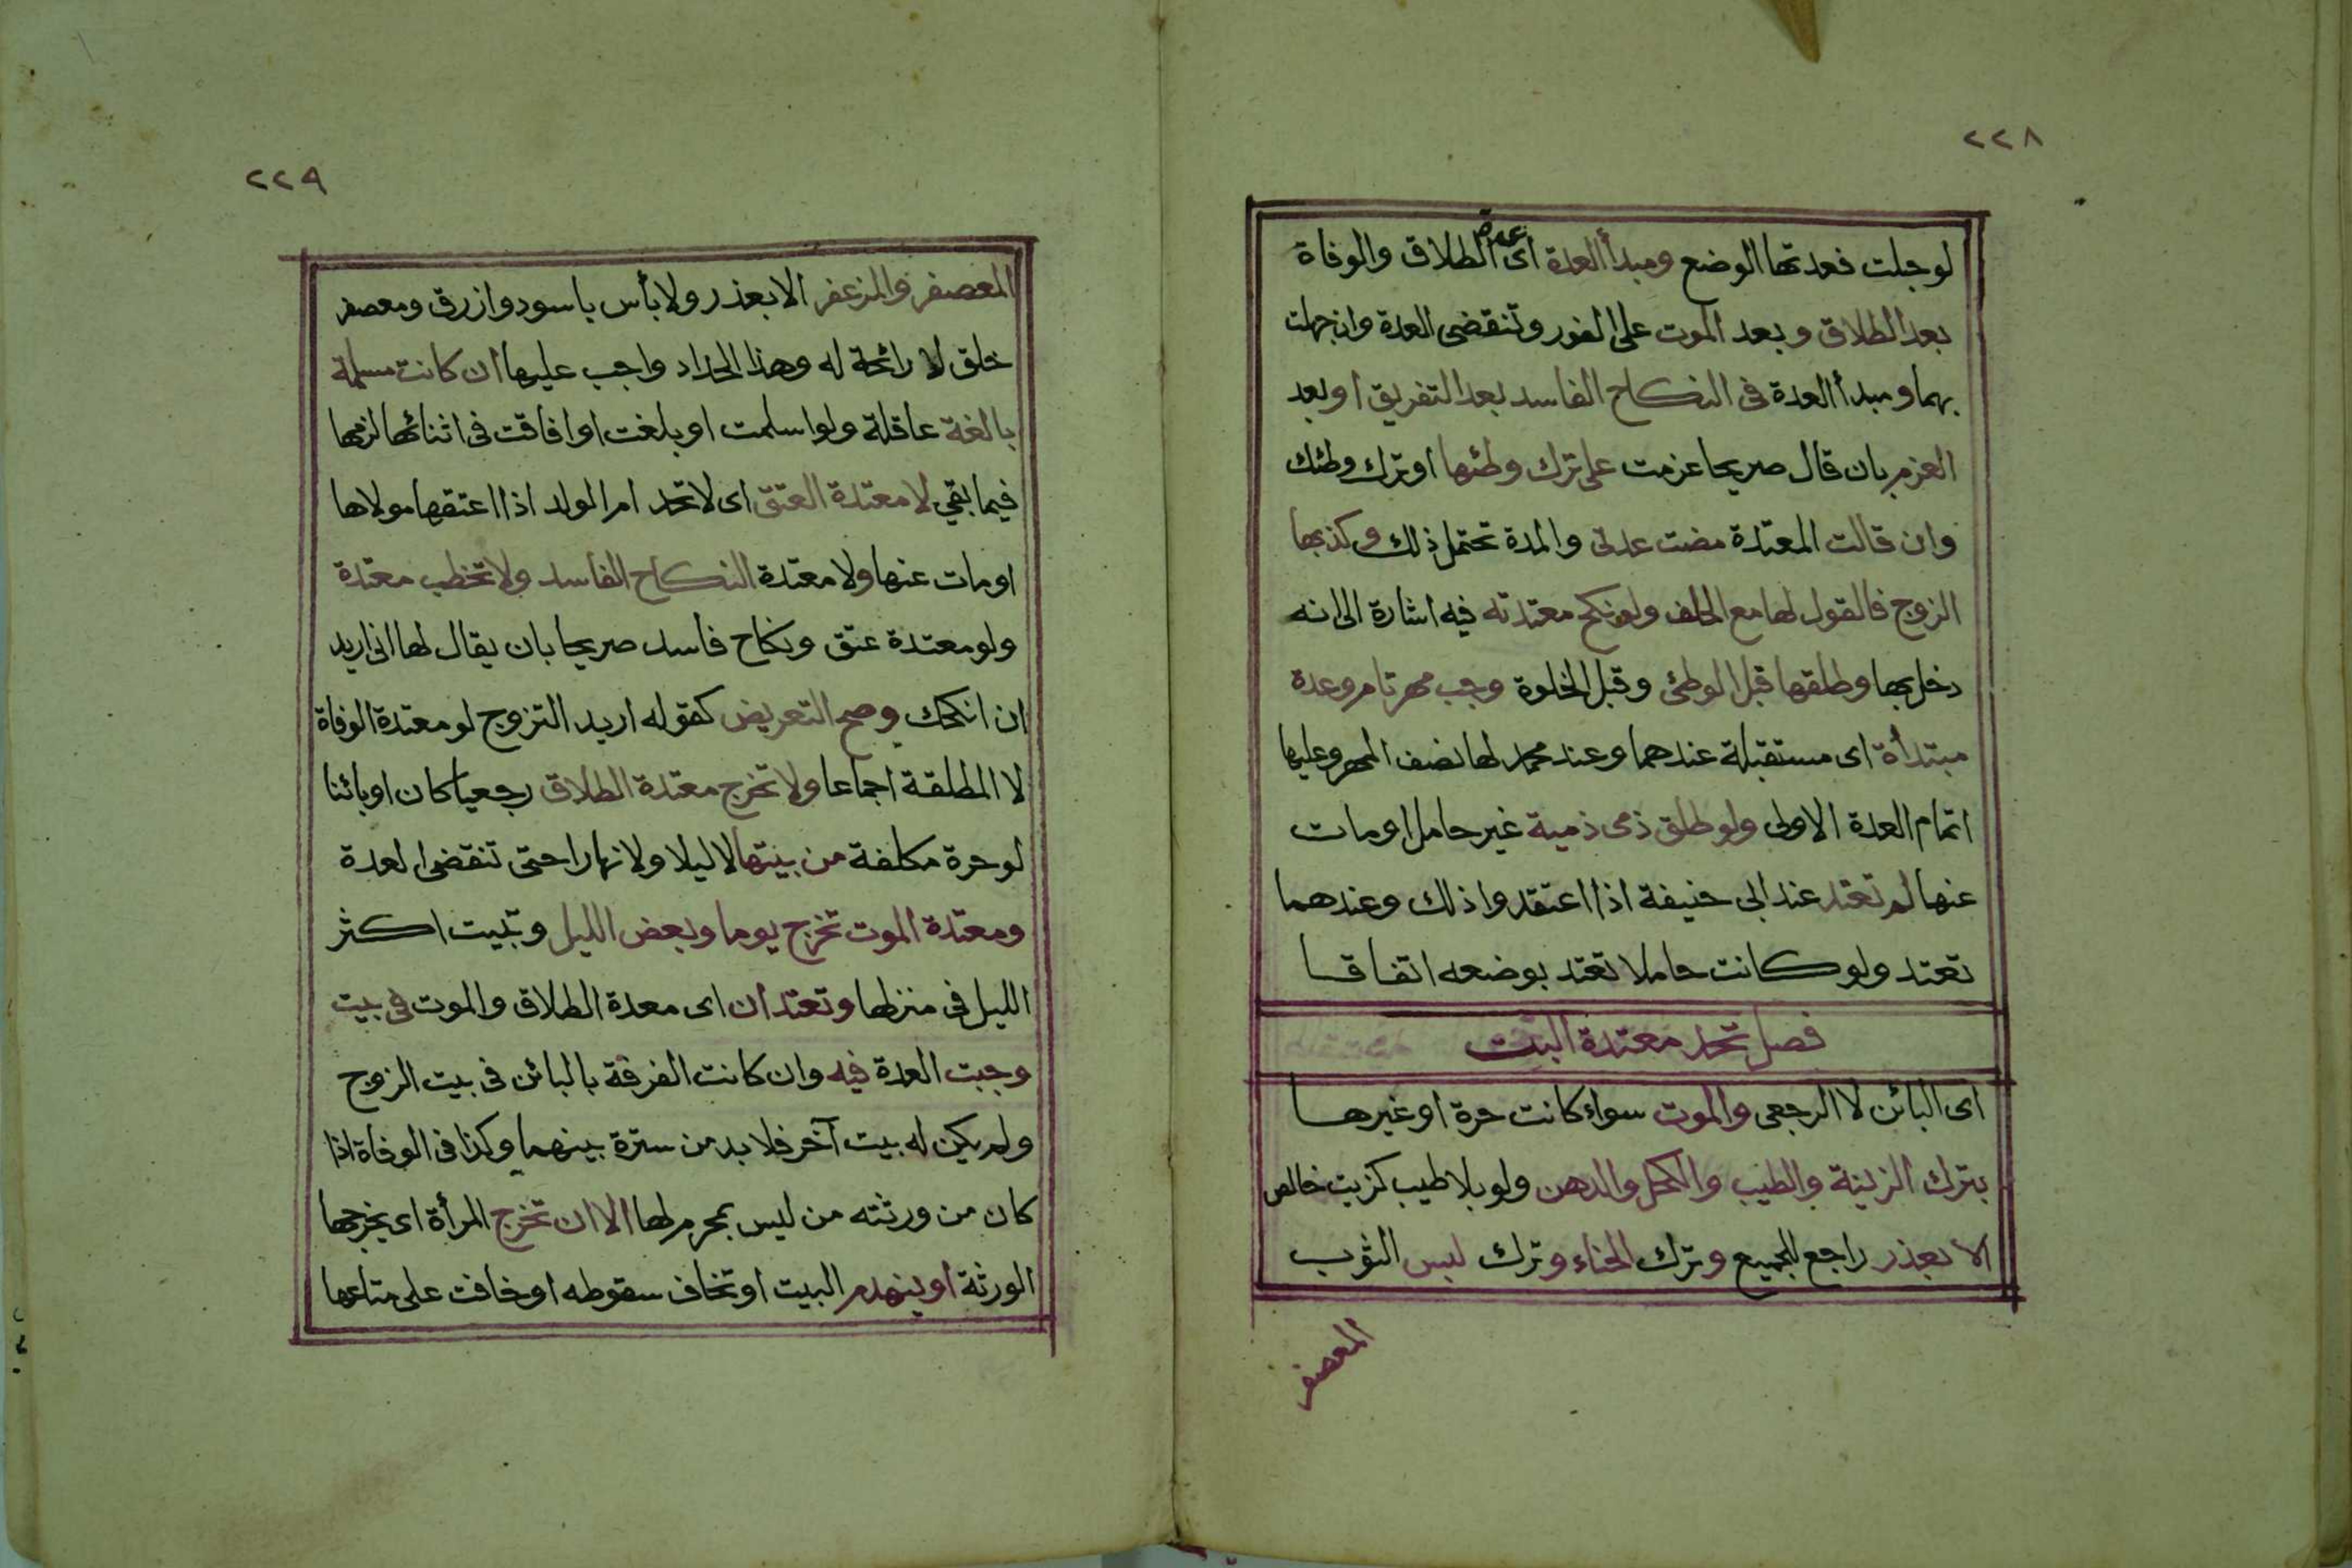 ٢٢٨
لو حبلت فعدتها الوضع ومبدأ العدة اى عدة الطلاق والوفاة
بعد الطلاق وبعد الموت على الفور وتنقضى العدة وان جهلت
بهما ومبدأ العدة فى النكاح الفاسد بعد التفريق او بعد
العزم بان قال صريحا عزمت على ترك وطئها او ترك وطئك
وان قالت المعتدة مضت عدتى والمدة تحتمل ذلك وكذبها
الزوج فالقول لها مع الحلف ولو نكح معتدته فيه اشارة الى انه
دخل بها وطلقها قبل الوطئ وقبل الخلوة وجب مهر تام وعدة
مبتدأة اى مستقبلة عندهما وعند محمد لها نصف المهر وعليها
اتمام العدة الاولى ولو طلق ذمى ذمية غير حامل او مات
عنها لم تعتد عند ابى حنيفة اذا اعتقدوا ذلك وعندهما
تعتد ولو كانت حاملا تعتد بوضعه اتفاقا
فصل تحد معتدة البت
اى البائن لا الرجعى والموت سواء كانت حرة او غيرها
بترك الزينة والطيب والكحل والدهن ولو بلا طيب كزيت خالص
الا بعذر راجع للجميع وترك الحناء وترك لبس الثوب
المعصفر
٢٢٩
المعصفر والمزعفر الا بعذر ولا بأس باسود وازرق ومعصفر
خلق لا رائحة له وهذا الحداد واجب عليها ان كانت مسلمة
بالغة عاقلة ولو اسلمت او بلغت او افاقت فى اثنائها لزمها
فيما بقي لا معتدة العتق اى لا تحد ام الولد اذا اعتقها مولاها
او مات عنها ولا معتدة النكاح الفاسد ولا تخطب معتدة
ولو معتدة عتق ونكاح فاسد صريحا بان يقال لها انى اريد
ان انكحك وصح التعريض كقوله اريد التزوج لو معتدة الوفاة
لا المطلقة اجماعا ولا تخرج معتدة الطلاق رجعيا كان او بائنا
لو حرة مكلفة من بيتها لا ليلا ولا نهارا حتى تنقضى العدة
ومعتدة الموت تخرج يوما وبعض الليل وتبيت اكثر
الليل فى منزلها وتعتدان اى معدة الطلاق والموت فى بيت
وجبت العدة فيه وان كانت الفرقة بالبائن فى بيت الزوج
ولم يكن له بيت آخر فلا بد من سترة بينهما وكذا فى الوفاة اذا
كان من ورثته من ليس بمحرم لها الا ان تخرج المرأة اى يخرجها
الورثة او ينهدم البيت او تخاف سقوطه او خافت على متاعها